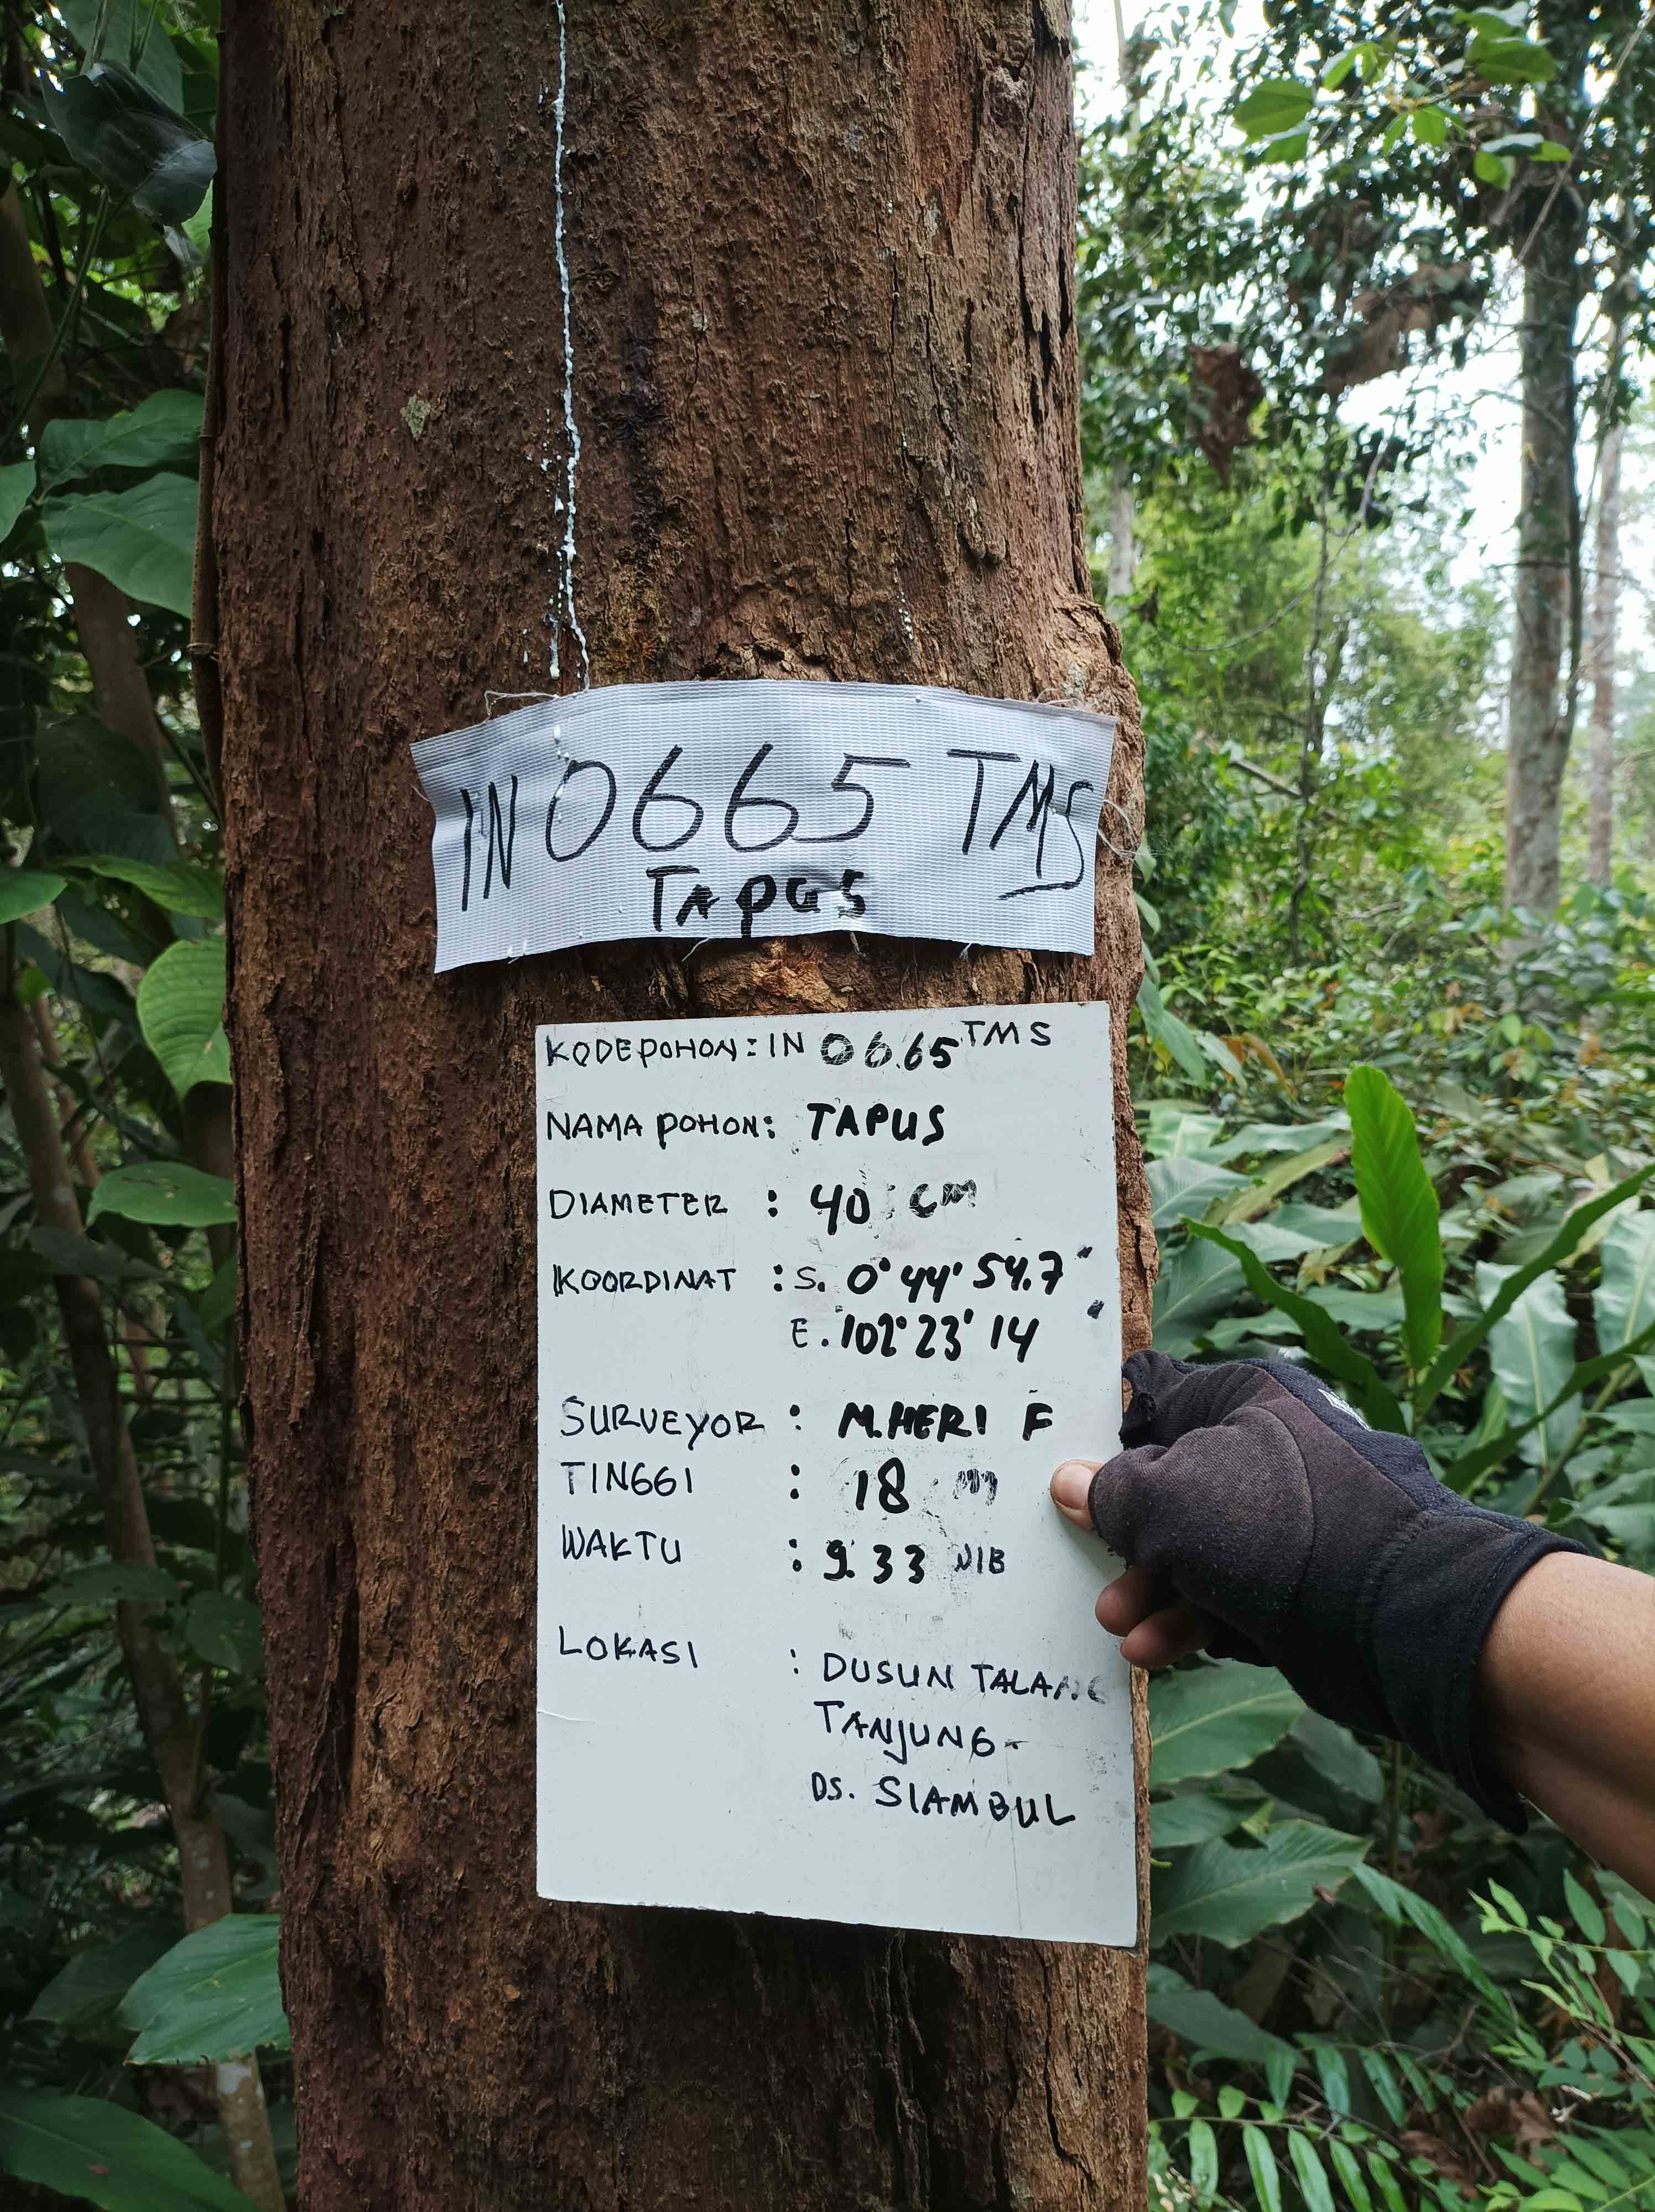 IN 0665 TMS
TAPUS
KODEPOHON: IN 0665 TMS
NAMA POHON: TAPUS
DIAMETER : 40 CM
KOORDINAT : S. 0°44'54.7"
E. 102°23'14"
SURVEYOR : M.HERI F
TINGGI : 18 m
WAKTU : 9.33 WIB
LOKASI : DUSUN TALANG
TANJUNG-
DS. SIAMBUL